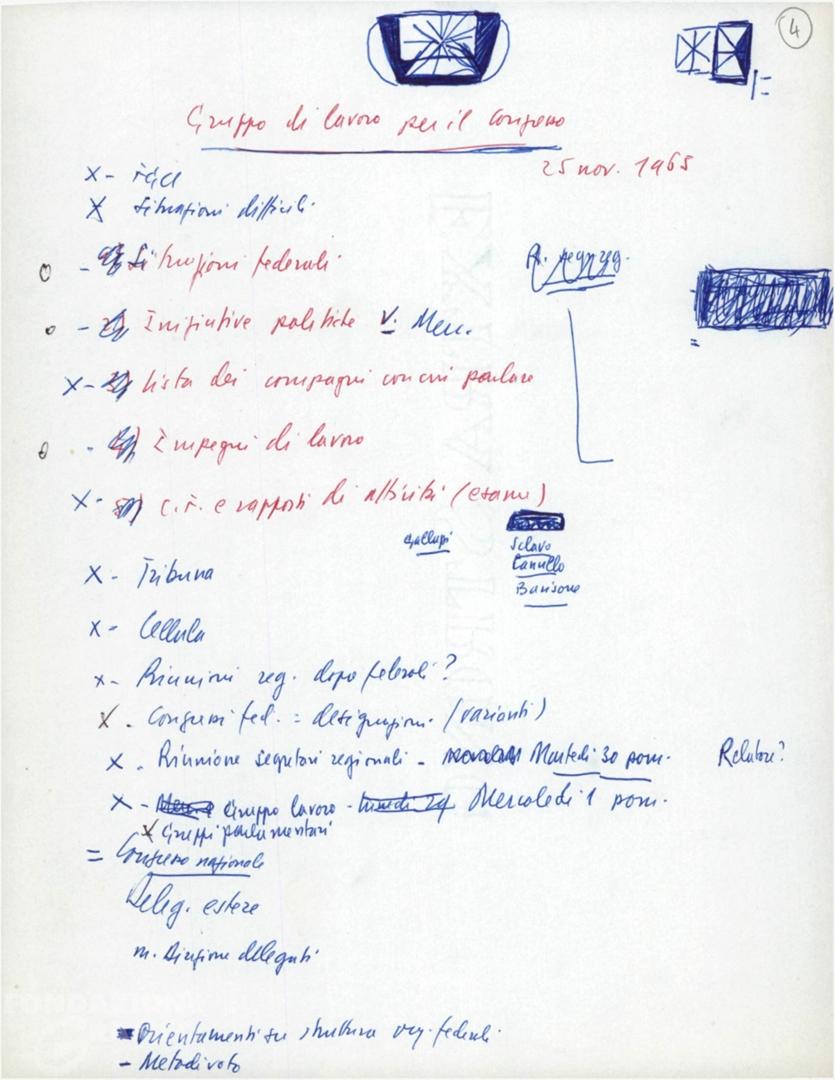 4
Gruppo di lavoro per il Congresso
25 nov. 1965
x-
x Situazioni difficili
o - Situazioni federali
R. segreg.
o - 2) Iniziative politiche V. Merc.
x- 3) Lista dei compagni con cui parlare
o - 4) Impegni di lavoro
x- 5) C.F. e rapporti di attività (esame)
Galluzzi
Sclavo
Canullo
Barisone
x- Tribuna
x- Cellula
x- Riunioni reg. dopo federali?
x. Congressi fed. = designazioni (varianti)
x. Riunione segretari regionali - Martedì 30 pom. Relatore?
x- Gruppo lavoro - Lunedì 29 Mercoledì 1 pom.
x Gruppi parlamentari
= Congresso nazionale
Deleg. estere
m. Direzione delegati
Orientamenti su struttura org. federali
- Metodi voto